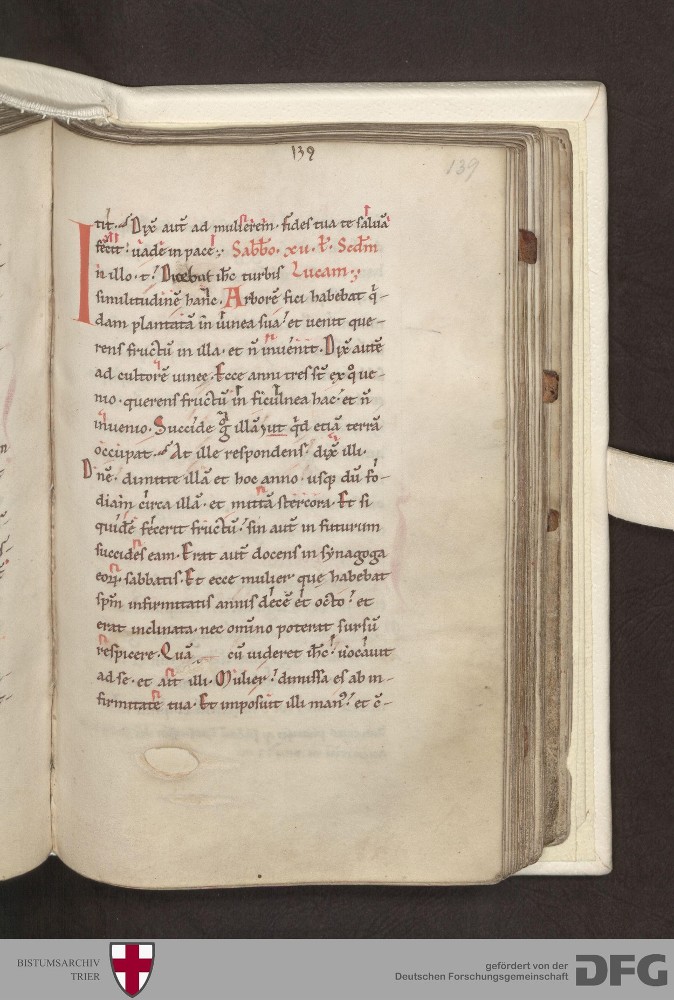 139
139
tit. Dix̄ aut̄ ad mulierem. fides tua te saluā
fecit: uade in pace. Sabb̄o. xv. k̄. Scd̄m
in illo. t. Dicebat ih̄c turbis Lucam
similitudinē hanc. Arborē fici habebat q̄-
dam plantatā in uinea sua. et uenit que-
rens fructū in illa. et n̄ inuenit. Dix̄ autē
ad cultorē uinee. Ecce anni tres st̄ ex quo ue-
nio. querens fructū in ficulnea hac. et n̄
inuenio. Succide g̊ illā ut qd̄ etiā terrā
occupat. At ille respondens. dix̄ illi.
Dn̄e. dimitte illā et hoc anno. usq; dū fo-
diam circa illā. et mittā stercora. Et si
quidē fecerit fructū. sin aut̄ in futurum
succides eam. Erat aut̄ docens in synagoga
eoꝝ sabbatis. Et ecce mulier que habebat
sp̄m infirmitatis annis decē et octo. et
erat inclinata. nec omīno poterat sursū
respicere. Quā cū uideret ih̄c. uocauit
ad se. et ait illi. Mulier. dimissa es ab in-
firmitate tua. Et imposuit illi man⁹. et c̄-
BISTUMSARCHIV
TRIER
gefördert von der
Deutschen Forschungsgemeinschaft
DFG